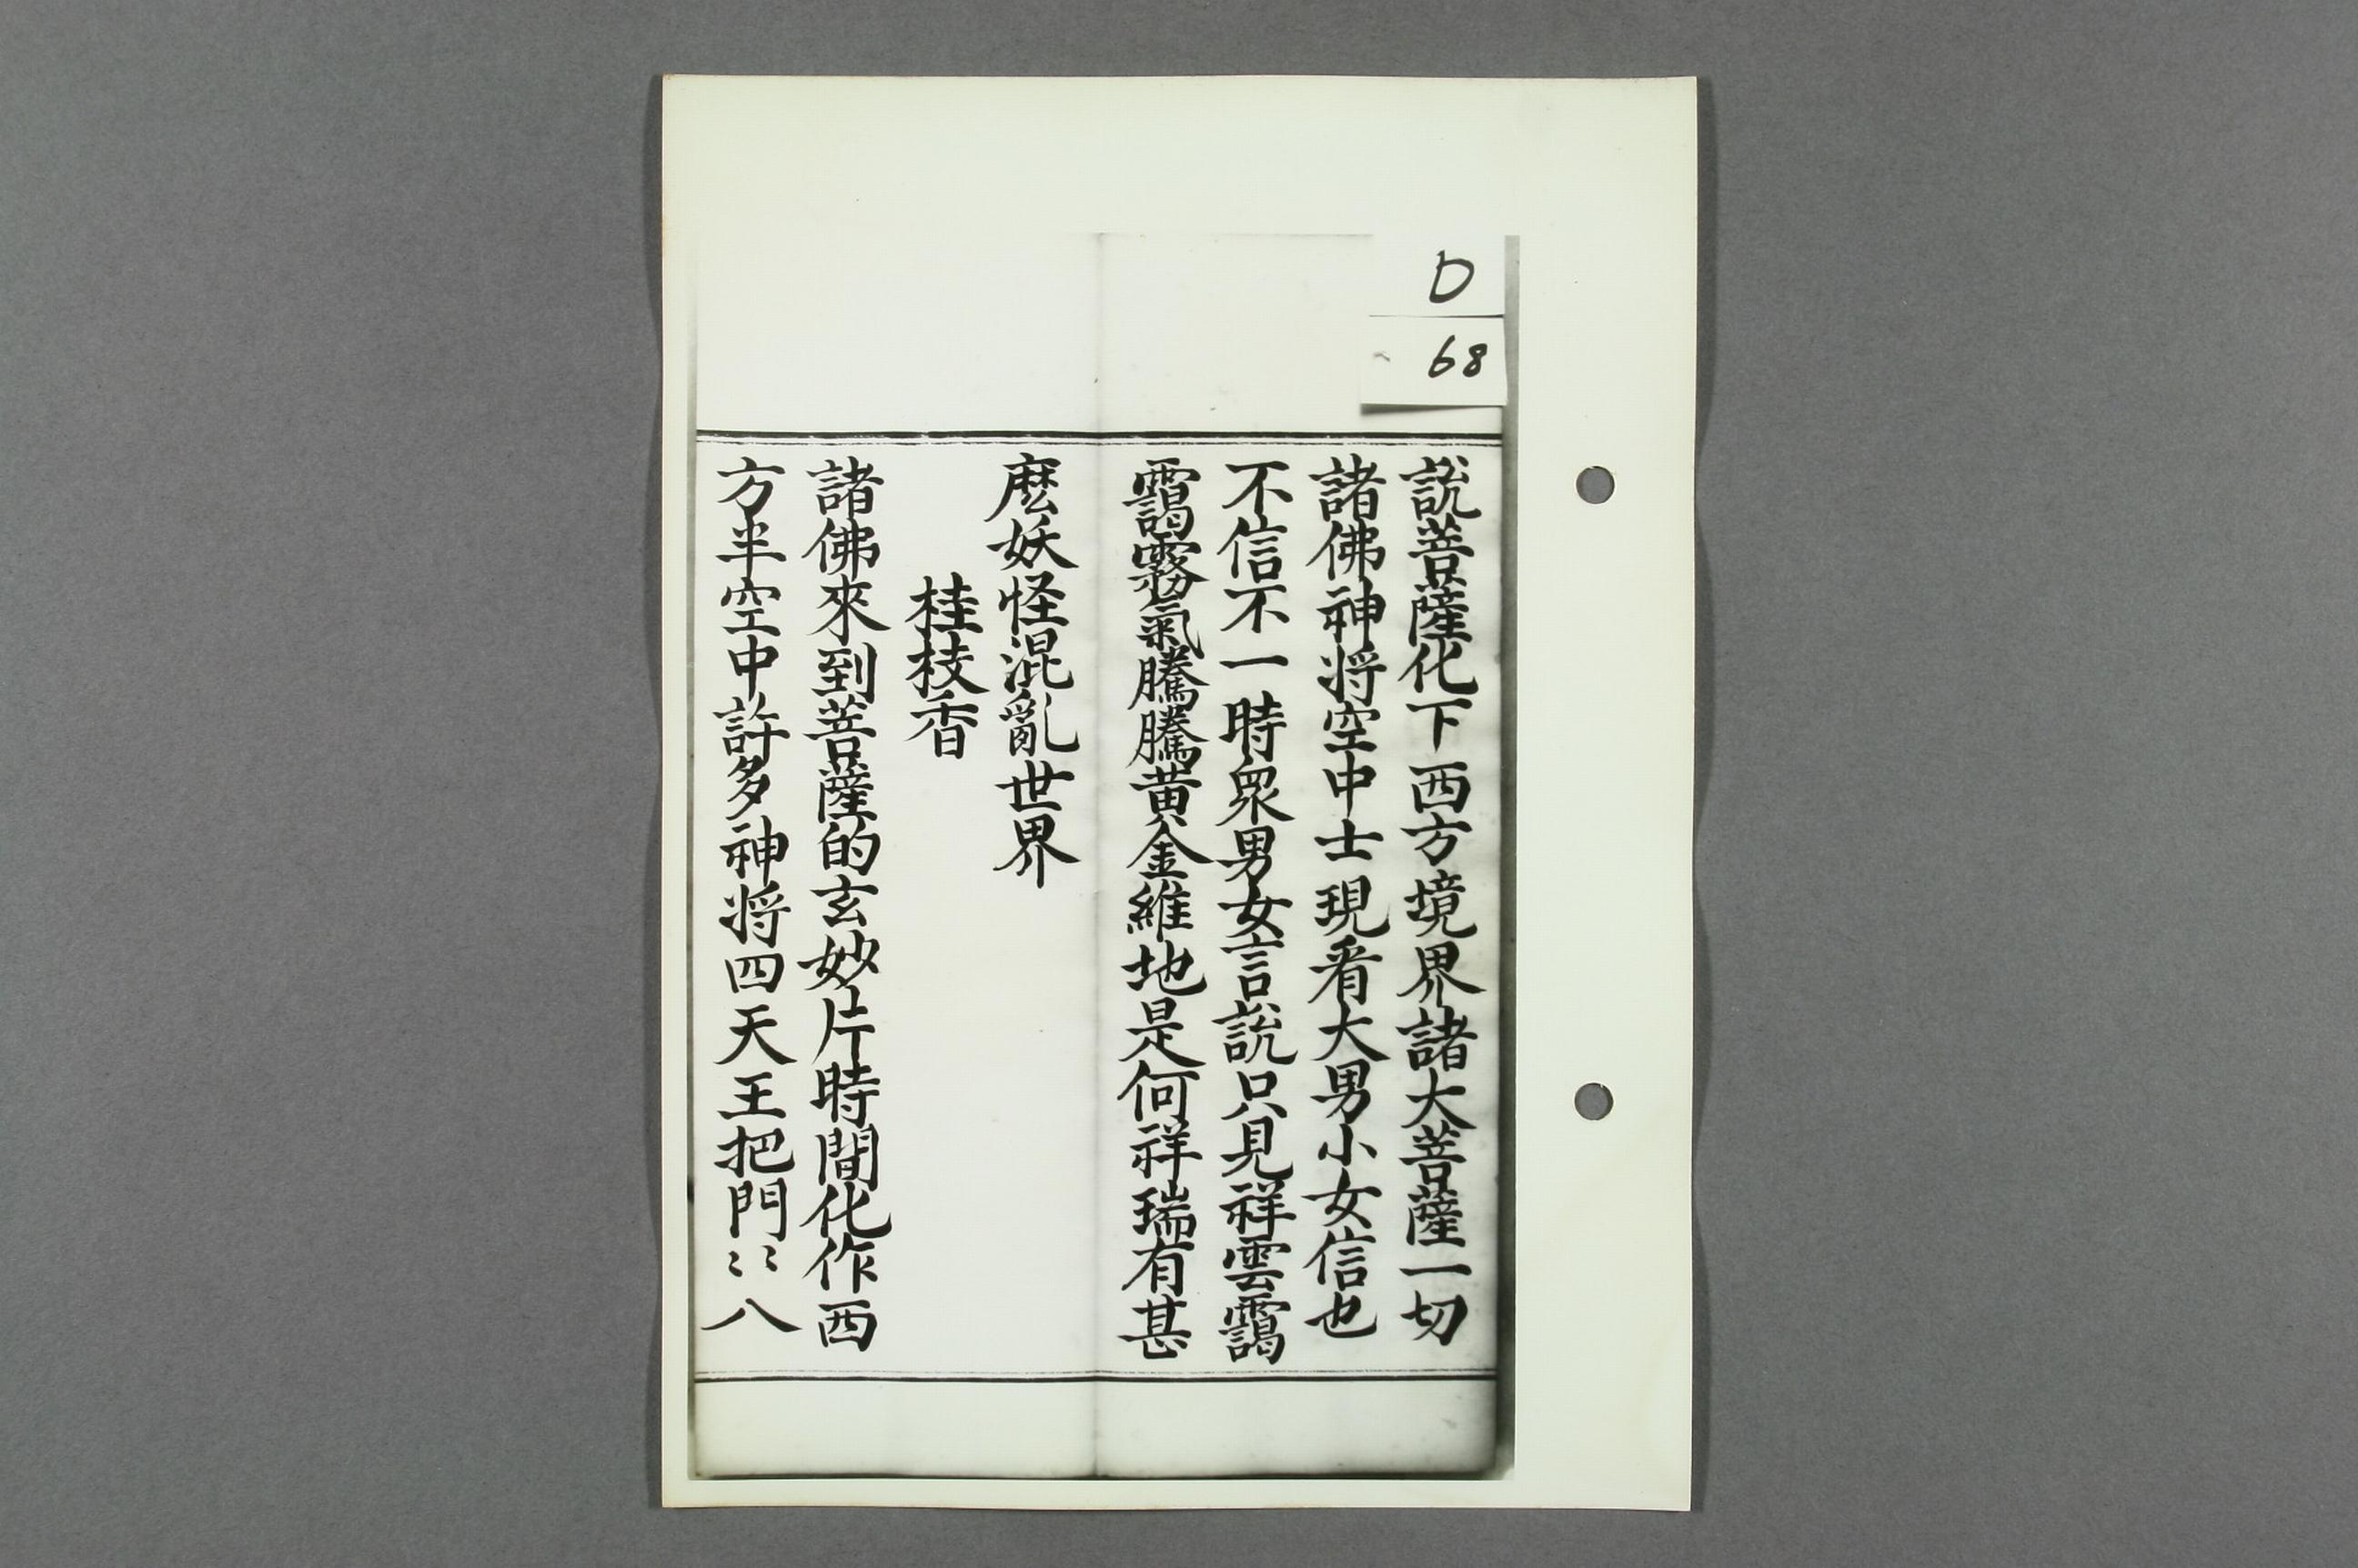 D
68
說菩薩化下西方境界諸大菩薩一切
諸佛神将空中士現看大男小女信也
不信不一時衆男女言說只見祥雲靄
靄霧氣騰騰黄金維地是何祥瑞有甚
麽妖怪混亂世界
桂枝香
諸佛來到菩薩的玄妙片時間化作西
方半空中許多神将四天王把門〻八